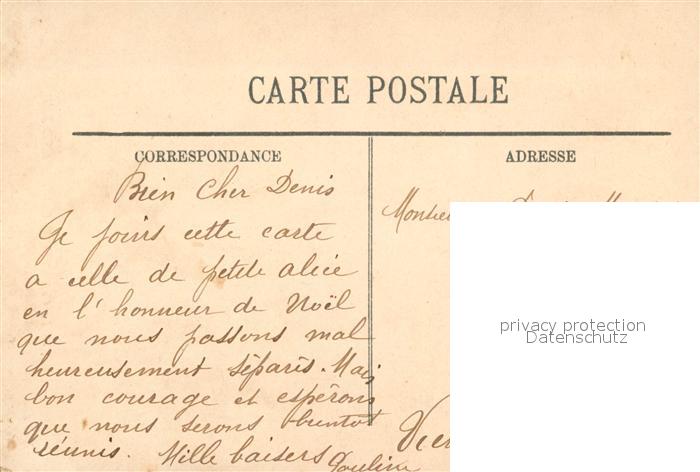 CARTE POSTALE
CORRESPONDANCE
ADRESSE
Bien Cher Denis
Je joins cette carte
a celle de petite alice
en l'honneur de Noël
que nous passons mal
heureusement séparés. Mais
bon courage et espérons
que nous serons bientot
réunis. Mille baisers
Pauline
privacy protection
Datenschutz